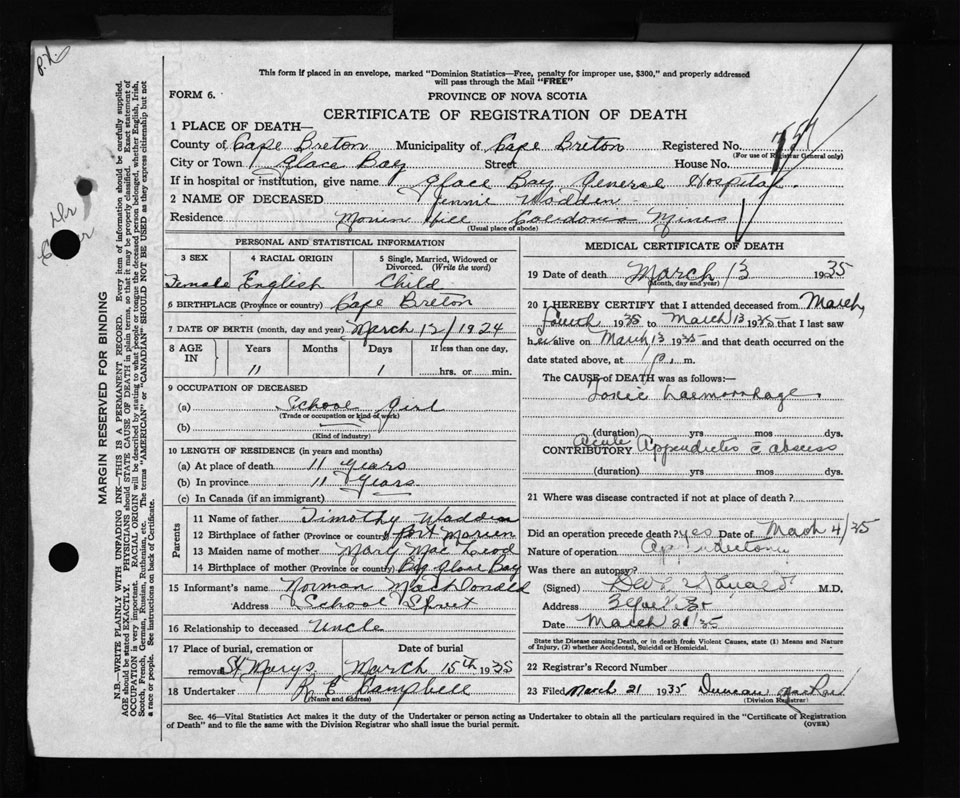 P.X.
This form if placed in an envelope, marked "Dominion Statistics—Free, penalty for improper use, $300," and properly addressed
will pass through the Mail "FREE"
FORM 6.
PROVINCE OF NOVA SCOTIA
CERTIFICATE OF REGISTRATION OF DEATH
1 PLACE OF DEATH—
County of Cape Breton Municipality of Cape Breton Registered No.
(For use of Registrar General only)
City or Town Glace Bay Street House No.
If in hospital or institution, give name Glace Bay General Hospital.
2 NAME OF DECEASED Jennie Wadden
Residence Morien Hill Caledonia Mines
(Usual place of abode)
PERSONAL AND STATISTICAL INFORMATION
3 SEX 4 RACIAL ORIGIN 5 Single, Married, Widowed or
Divorced. (Write the word)
Female English Child
6 BIRTHPLACE (Province or country) Cape Breton
7 DATE OF BIRTH (month, day and year) March 12/1924
8 AGE IN Years Months Days If less than one day,
11 1 hrs. or min.
9 OCCUPATION OF DECEASED
(a) School Girl
(Trade or occupation or kind of work)
(b)
(Kind of industry)
10 LENGTH OF RESIDENCE (in years and months)
(a) At place of death 11 Years
(b) In province 11 Years
(c) In Canada (if an immigrant)
Parents
11 Name of father Timothy Wadden
12 Birthplace of father (Province or country) Port Morien
13 Maiden name of mother Mary Mac Leod
14 Birthplace of mother (Province or country) Big Glace Bay
15 Informant's name Norman MacDonald
Address School Street
16 Relationship to deceased Uncle
17 Place of burial, cremation or Date of burial
removal St Marys March 15th 1935
18 Undertaker Campbell
(Name and address)
MEDICAL CERTIFICATE OF DEATH
19 Date of death March 13 1935
(Month, day and year)
20 I HEREBY CERTIFY that I attended deceased from March
fourth 1935 to March 13 1935 that I last saw
her alive on March 13 1935 and that death occurred on the
date stated above, at 1 p. m.
The CAUSE of DEATH was as follows:—
Toxic haemorrhage
(duration) yrs mos dys.
CONTRIBUTORY Acute Appendicitis c abscess
(duration) yrs mos dys.
21 Where was disease contracted if not at place of death?
Did an operation precede death? yes Date of March 4/35
Nature of operation Appendectomy
Was there an autopsy?
(Signed) M.D.
Address
Date March 21/35
State the Disease causing Death, or in death from Violent Causes, state (1) Means and Nature
of Injury, (2) whether Accidental, Suicidal or Homicidal.
22 Registrar's Record Number
23 Filed March 21 1935 Duncan
(Division Registrar)
Sec. 46—Vital Statistics Act makes it the duty of the Undertaker or person acting as Undertaker to obtain all the particulars required in the "Certificate of Registration
of Death" and to file the same with the Division Registrar who shall issue the burial permit.
(OVER)
MARGIN RESERVED FOR BINDING
N.B.—WRITE PLAINLY WITH UNFADING INK—THIS IS A PERMANENT RECORD. Every item of information should be carefully supplied.
AGE should be stated EXACTLY. PHYSICIANS should STATE CAUSE OF DEATH in plain terms, so that it may be properly classified. Exact statement of
OCCUPATION is very important. RACIAL ORIGIN will be described by stating to what people or tongue the deceased person belonged, whether English, Irish,
Scotch, French, German, Russian, Ruthenian, etc. The terms "AMERICAN" or "CANADIAN" SHOULD NOT BE USED as they express citizenship but not
a race or people. See instructions on back of Certificate.